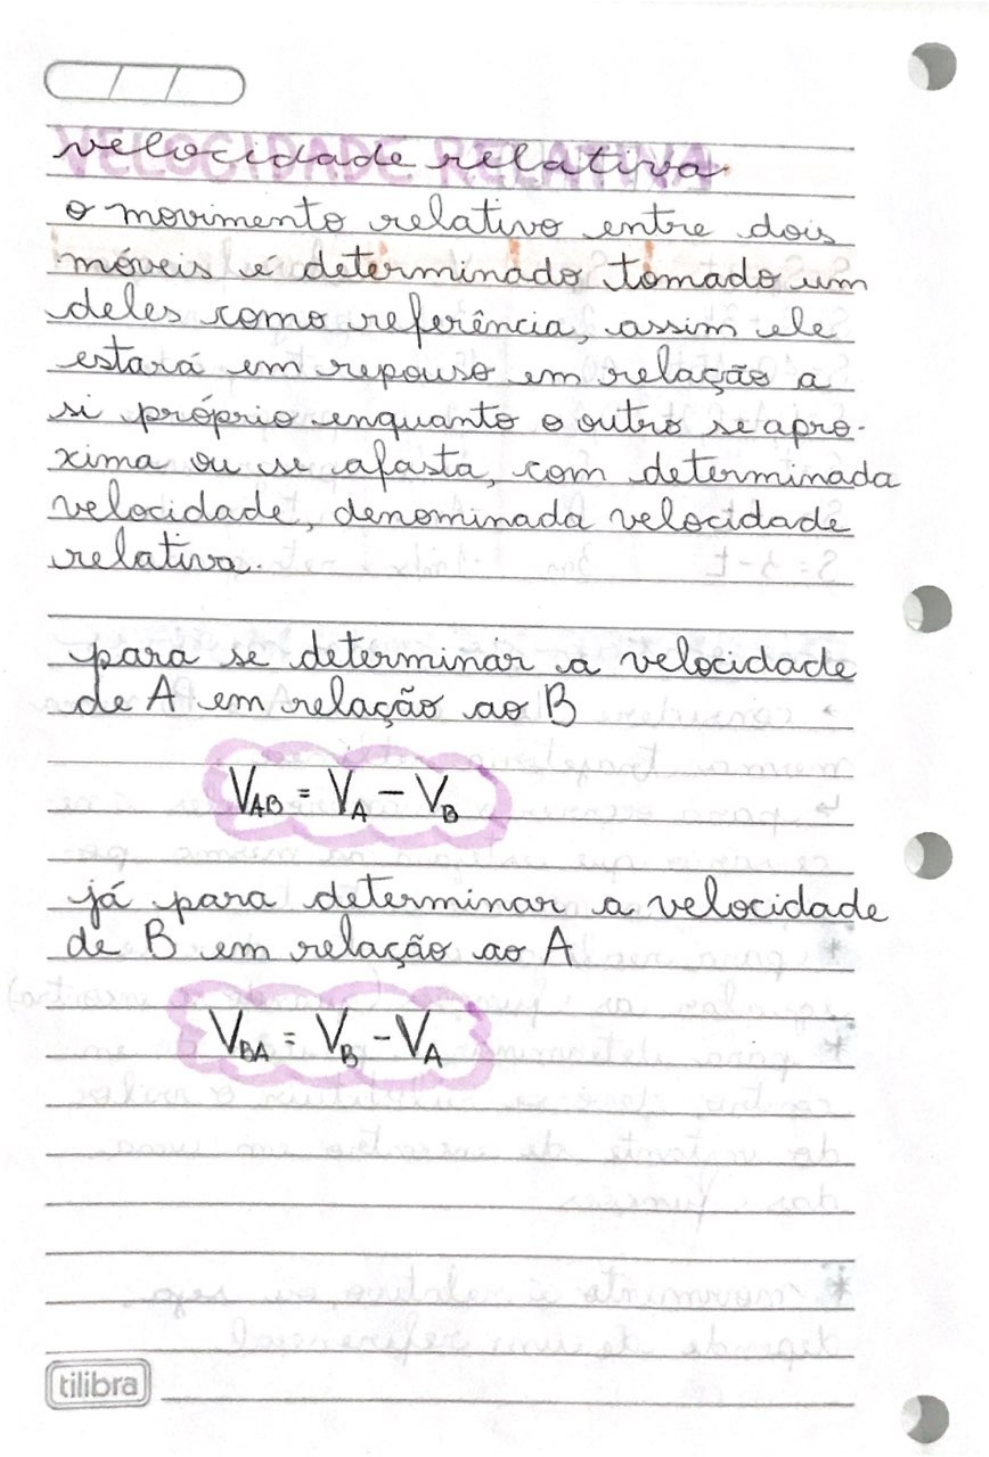 VELOCIDADE RELATIVA
velocidade relativa
o movimento relativo entre dois
móveis é determinado tomado um
deles como referência, assim ele
estará em repouso em relação a
si próprio enquanto o outro se apro-
xima ou se afasta, com determinada
velocidade, denominada velocidade
relativa.
para se determinar a velocidade
de A em relação ao B
VAB = VA - VB
já para determinar a velocidade
de B em relação ao A
VBA = VB - VA
tilibra